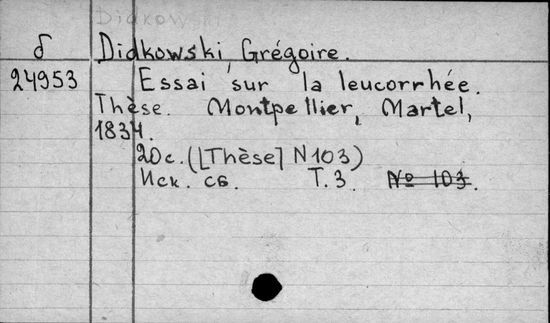 Didkowski
б Didkowski, Grégoire.
24953 Essai sur la leucorrhée.
Thèse. Montpellier, Martel,
1834.
20c. ([Thèse] N 103)
Иск. сб. Т. 3. № 103.